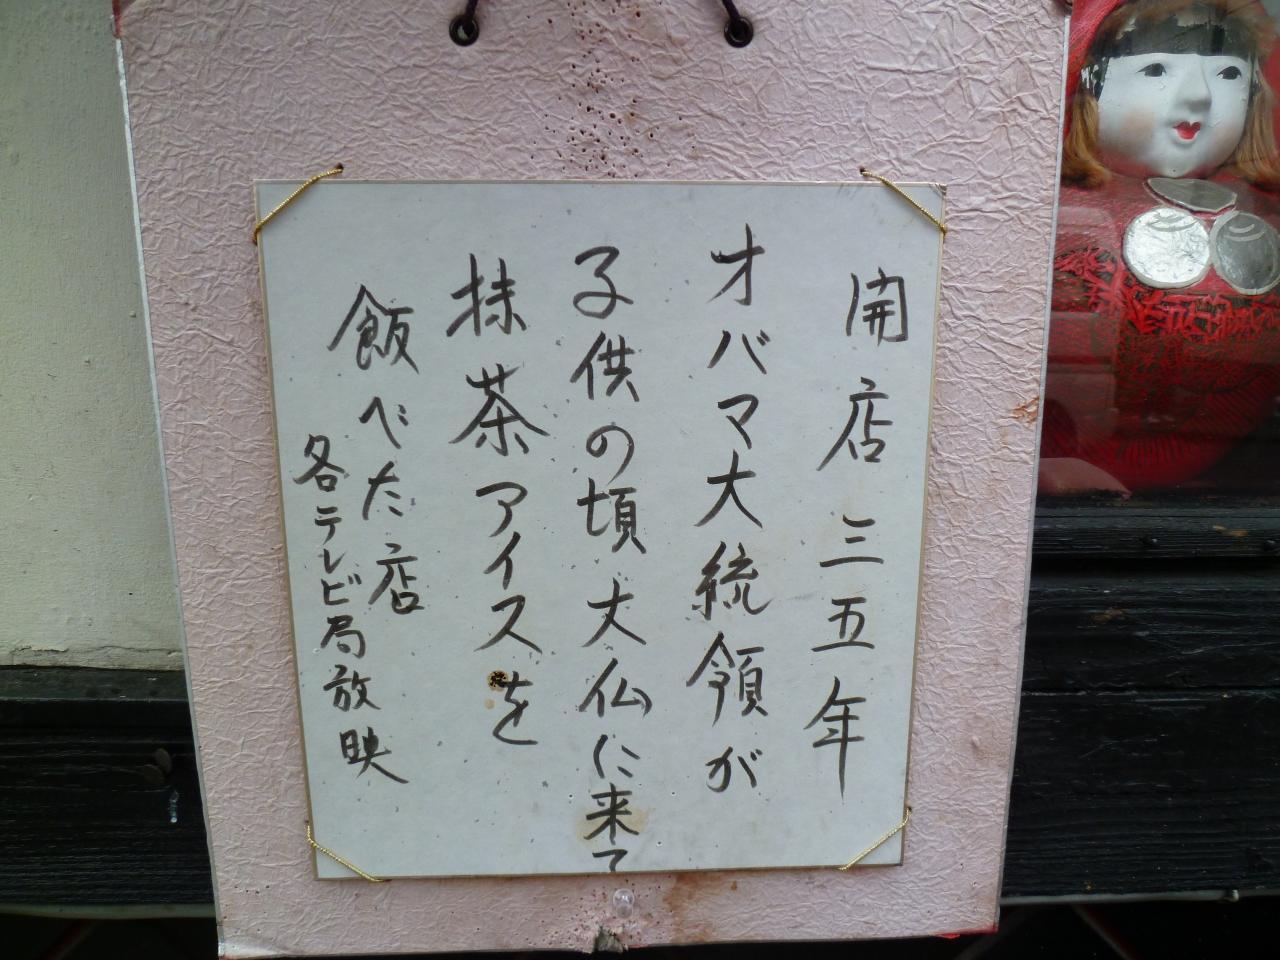 開店三五年
オバマ大統領が
子供の頃大仏に来て
抹茶アイスを
飯べた店
各テレビ局放映